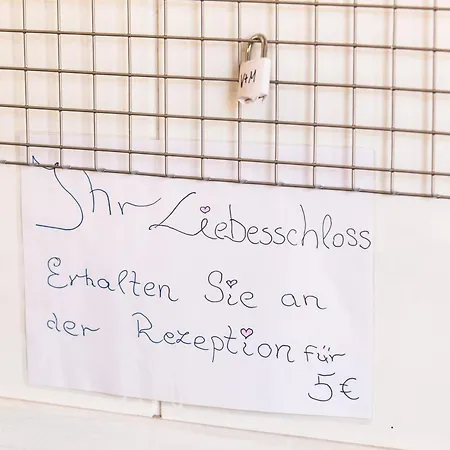 V+M
Ihr Liebesschloss
Erhalten Sie an
der Rezeption für
5€